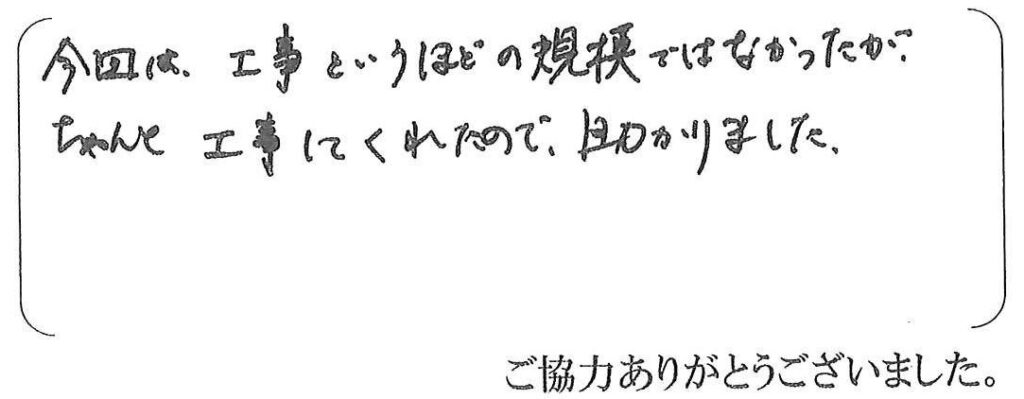 今回は、工事というほどの規模ではなかったが、
ちゃんと工事してくれたので、助かりました。
ご協力ありがとうございました。